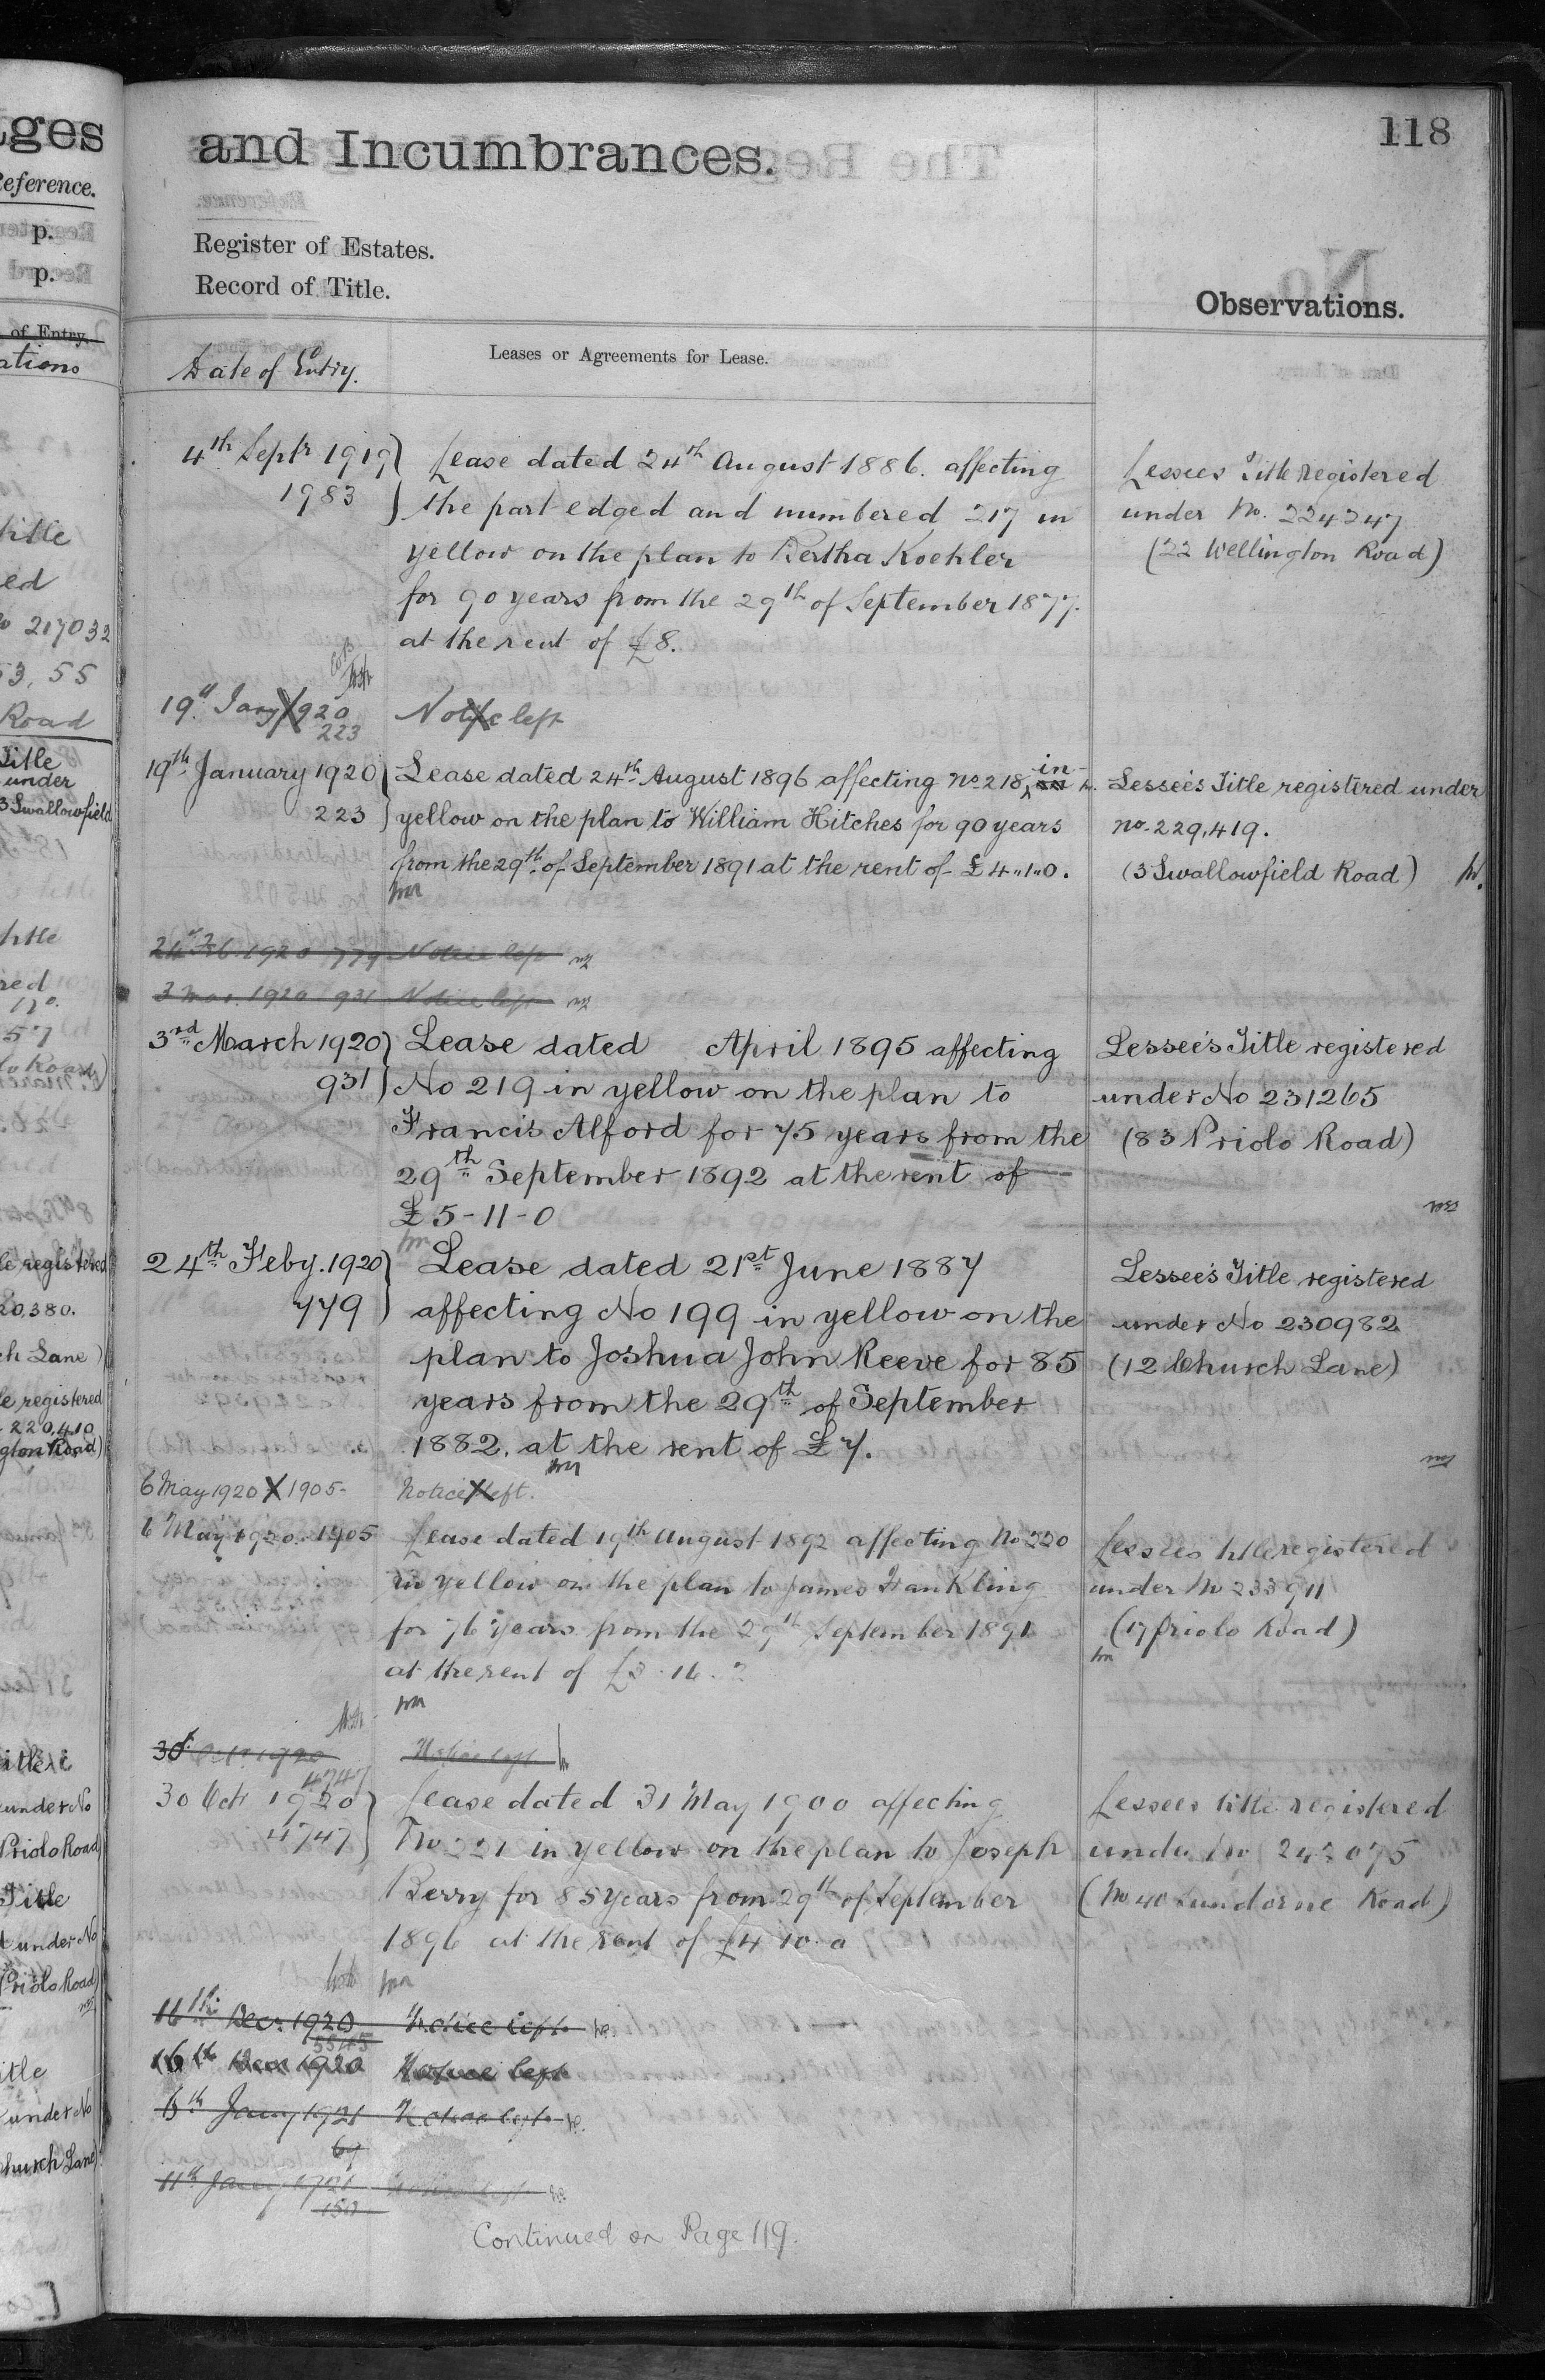 118
and Incumbrances.
Register of Estates.
Record of Title.
Observations.
Date of Entry.
Leases or Agreements for Lease.
4th Septr 1919
1983
Lease dated 24th August 1886. affecting
the part edged and numbered 217 in
yellow on the plan to Bertha Koehler
for 90 years from the 29th of September 1877.
at the rent of £8.
Lessees Title registered
under No. 224247
(22 Wellington Road)
19th Jany 1920
223
Notice left
19th January 1920
223
Lease dated 24th August 1896 affecting No 218 in
yellow on the plan to William Hitches for 90 years
from the 29th of September 1891 at the rent of £4..1..0.
Lessee's Title registered under
No. 229,419.
(3 Swallowfield Road)
24th Feb. 1920 779 Notice left
3 Mar. 1920 931 Notice left
3rd March 1920
931
Lease dated April 1895 affecting
No 219 in yellow on the plan to
Francis Alford for 75 years from the
29th September 1892 at the rent of
£5-11-0
Lessee's Title registered
under No 231265
(83 Priolo Road)
24th Feby. 1920
779
Lease dated 21st June 1887
affecting No 199 in yellow on the
plan to Joshua John Reeve for 85
years from the 29th of September
1882. at the rent of £7.
Lessee's Title registered
under No 230982
(12 Church Lane)
6 May 1920 1905-
Notice left.
6 May 1920. 1905
Lease dated 19th August 1892 affecting No 220
in yellow on the plan to James Frankling
for 76 years from the 29th September 1891
at the rent of £3.16.
Lessees title registered
under No 233911
(17 Priolo Road)
30th Octr 1920
4747
Notice left
30 Octr 1920
4747
Lease dated 31 May 1900 affecting
No 221 in yellow on the plan to Joseph
Berry for 85 years from 29th of September
1896 at the rent of £4 10.0
Lessees title registered
under No 242075
(No 40 Sundorne Road)
16th Decr 1920
5545
Notice left
16th Decr 1920 Notice left
6th Jany 1921 Notice left
67
11th Jany 1921 Notice left
Continued on Page 119.